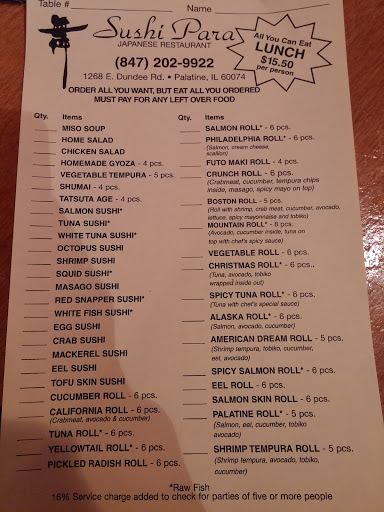 Table # Name
Sushi Para
JAPANESE RESTAURANT
(847) 202-9922
1268 E. Dundee Rd. • Palatine, IL 60074
All You Can Eat
LUNCH
$15.50
per person
ORDER ALL YOU WANT, BUT EAT ALL YOU ORDERED
MUST PAY FOR ANY LEFT OVER FOOD
Qty. Items
MISO SOUP
HOME SALAD
CHICKEN SALAD
HOMEMADE GYOZA - 4 pcs.
VEGETABLE TEMPURA - 5 pcs.
SHUMAI - 4 pcs.
TATSUTA AGE - 4 pcs.
SALMON SUSHI*
TUNA SUSHI*
WHITE TUNA SUSHI*
OCTOPUS SUSHI
SHRIMP SUSHI
SQUID SUSHI*
MASAGO SUSHI
RED SNAPPER SUSHI*
WHITE FISH SUSHI*
EGG SUSHI
CRAB SUSHI
MACKEREL SUSHI
EEL SUSHI
TOFU SKIN SUSHI
CUCUMBER ROLL - 6 pcs.
CALIFORNIA ROLL - 6 pcs.
(Crabmeat, avocado & cucumber)
TUNA ROLL* - 6 pcs.
YELLOWTAIL ROLL* - 6 pcs.
PICKLED RADISH ROLL - 6 pcs.
Qty. Items
SALMON ROLL* - 6 pcs.
PHILADELPHIA ROLL* - 6 pcs.
(Salmon, cream cheese,
scallion)
FUTO MAKI ROLL - 4 pcs.
CRUNCH ROLL - 6 pcs.
(Crabmeat, cucumber, tempura chips
inside, masago, spicy mayo on top)
BOSTON ROLL - 5 pcs.
(Roll with shrimp, crab meat, cucumber, avocado,
lettuce, spicy mayonnaise and tobiko)
MOUNTAIN ROLL* - 8 pcs.
(Avocado, cucumber inside, tuna on
top with chef's spicy sauce)
VEGETABLE ROLL - 6 pcs.
CHRISTMAS ROLL* - 6 pcs..
(Tuna, avocado, tobiko
wrapped inside out)
SPICY TUNA ROLL* - 6 pcs.
(Tuna with chef's special sauce)
ALASKA ROLL* - 6 pcs.
(Salmon, avocado, cucumber)
AMERICAN DREAM ROLL - 5 pcs.
(Shrimp tempura, tobiko, cucumber,
eel, avocado)
SPICY SALMON ROLL* - 6 pcs.
EEL ROLL - 6 pcs.
SALMON SKIN ROLL - 6 pcs.
PALATINE ROLL* - 5 pcs.
(Salmon, eel, cucumber, tobiko
avocado)
SHRIMP TEMPURA ROLL - 5 pcs.
(Shrimp tempura, avocado, tobiko,
cucumber)
*Raw Fish
16% Service charge added to check for parties of five or more people